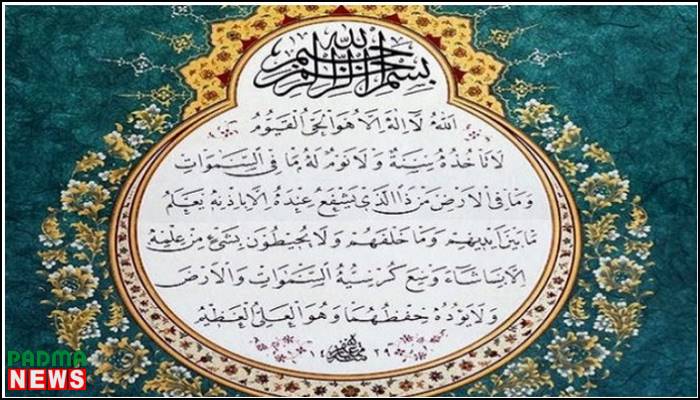 بِسْمِ اللهِ الرَّحْمٰنِ الرَّحِيمِ
اَللهُ لَا اِلٰهَ اِلَّا هُوَ الْحَيُّ الْقَيُّومُ
لَا تَأْخُذُهُ سِنَةٌ وَلَا نَوْمٌ لَهُ مَا فِي السَّمٰوَاتِ
وَمَا فِي الْاَرْضِ مَنْ ذَا الَّذِي يَشْفَعُ عِنْدَهُ اِلَّا بِاِذْنِهِ يَعْلَمُ
مَا بَيْنَ اَيْدِيهِمْ وَمَا خَلْفَهُمْ وَلَا يُحِيطُونَ بِشَيْءٍ مِنْ عِلْمِهِ
اِلَّا بِمَا شَاءَ وَسِعَ كُرْسِيُّهُ السَّمٰوَاتِ وَالْاَرْضَ
وَلَا يَؤُدُهُ حِفْظُهُمَا وَهُوَ الْعَلِيُّ الْعَظِيمُ
١٤٢٩
PADMA
NEWS